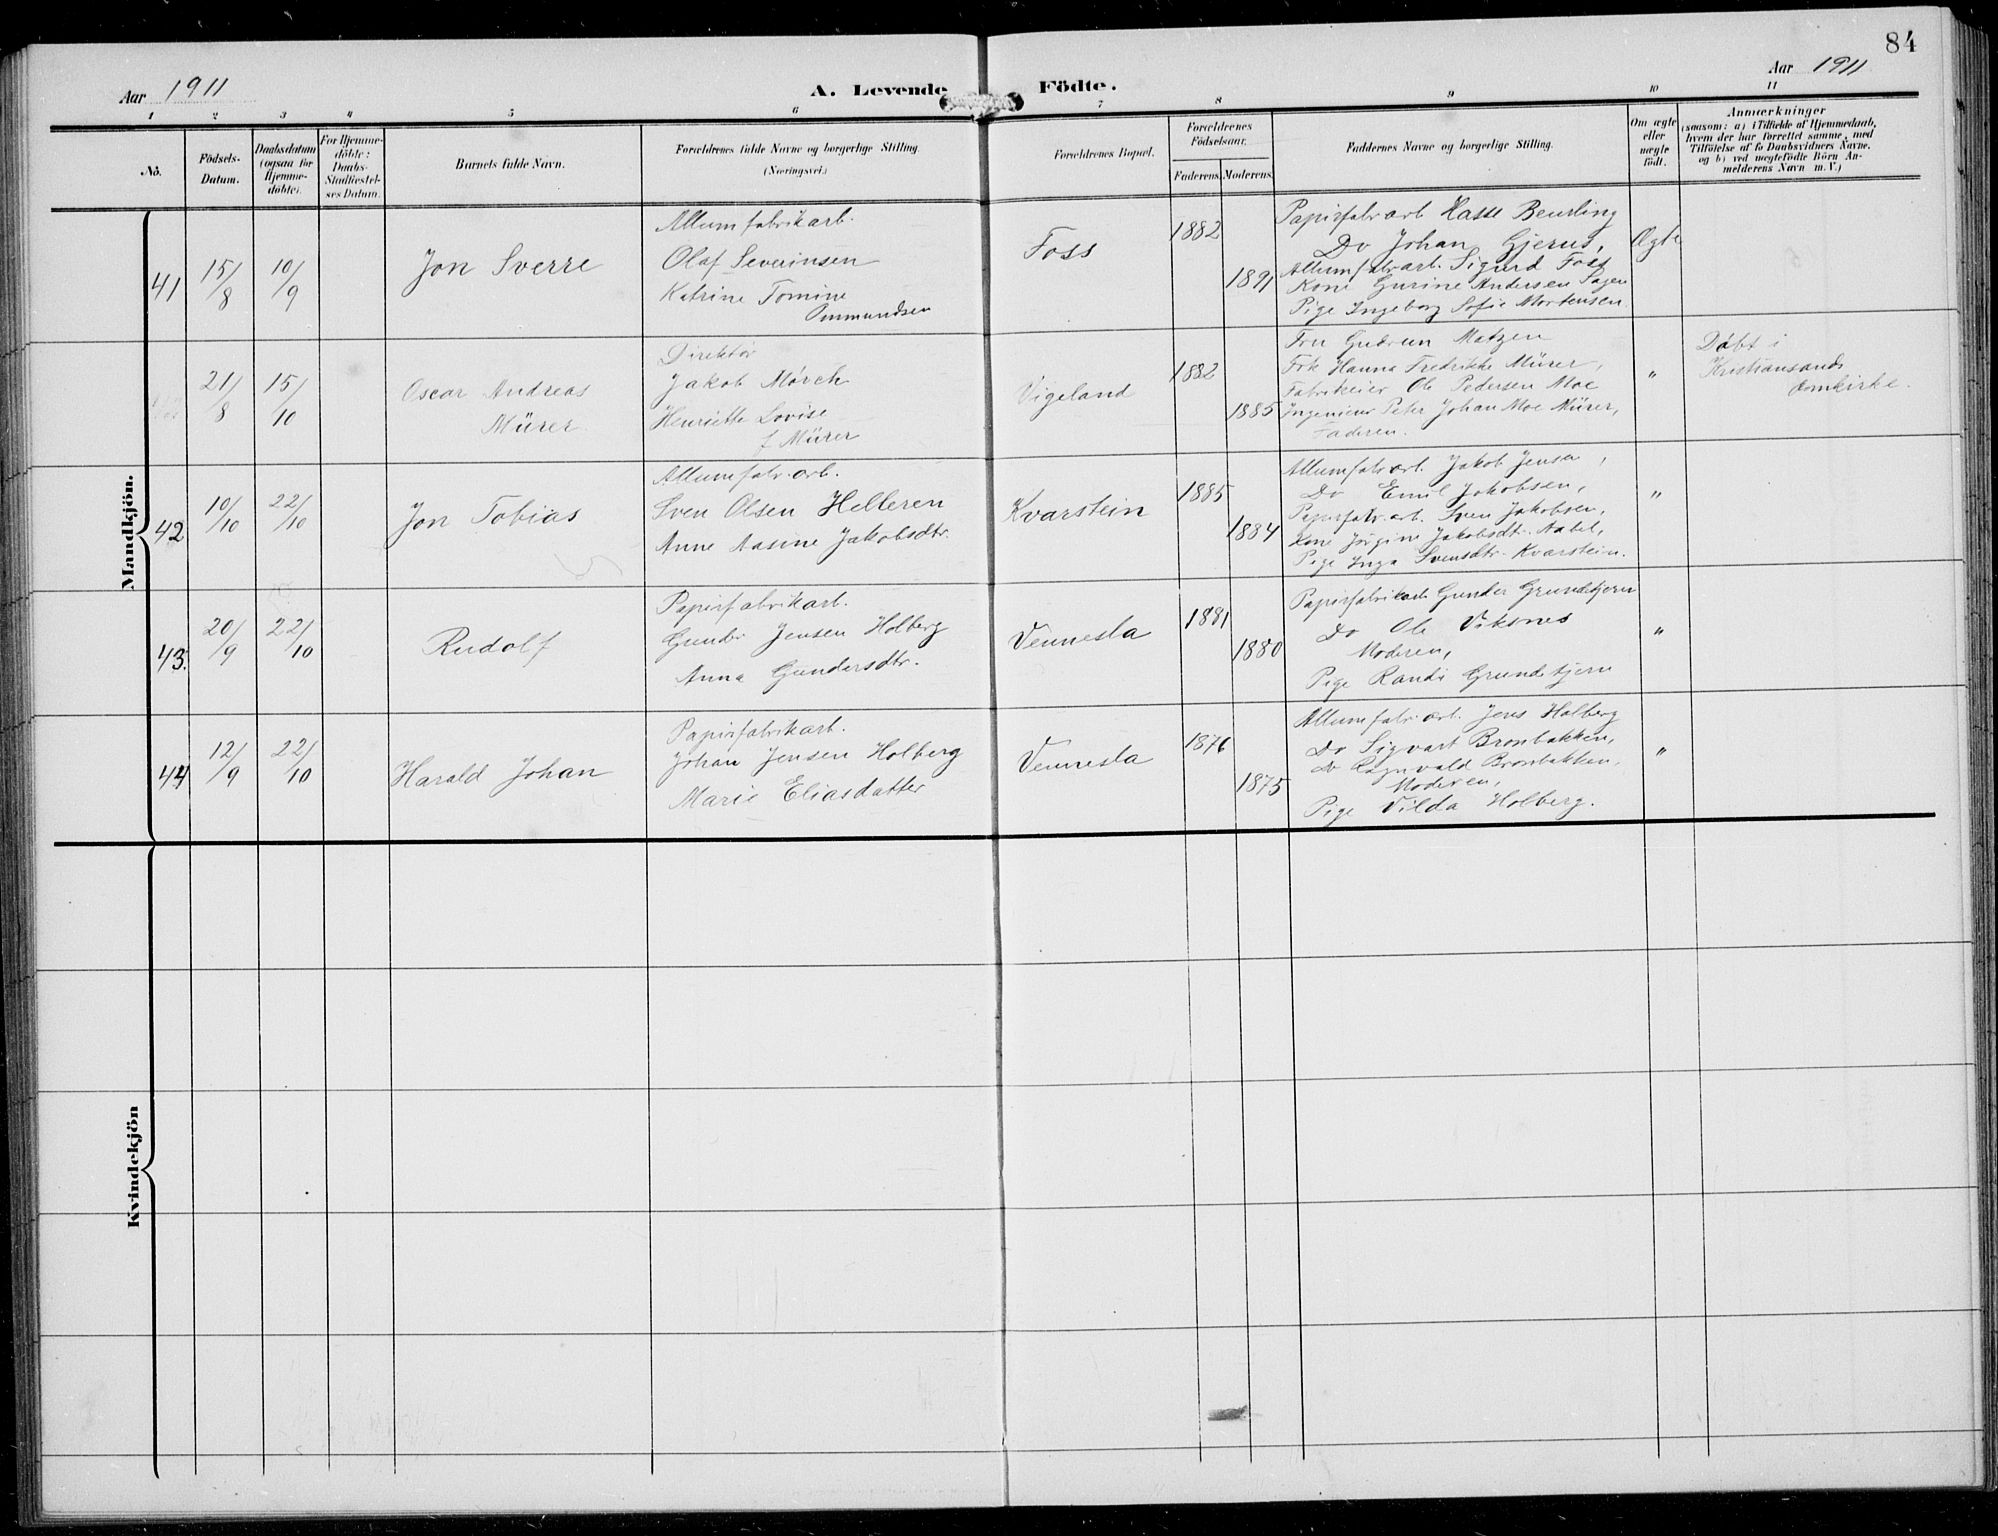 84
Aar 1911
A. Levende Födte.
Aar 1911
1 2 3 4 5 6 7 8 9 10 11
No.
Födsels-
Datum.
Daabsdatum
(ogsaa for
Hjemme-
döbte).
For Hjemme-
döbte:
Daabs-
Stadfæstel-
ses Datum.
Barnets fulde Navn.
Forældrenes fulde Navne og borgerlige Stilling.
(Næringsvei.)
Forældrenes Bopæl.
Forældrenes
Födselsaar.
Faderens. Moderens.
Faddernes Navne og borgerlige Stilling.
Om ægte
eller
uægte
født.
Anmærkninger
(saasom: a) i Tilfælde af Hjemmedaab,
hvem der har forrettet samme, med
Tilföielse af to Daabsvidners Navne,
og b) ved uægtefödte Börn An-
melderens Navn m. V.)
Mandkjön.
41
15/8
10/9
Jon Sverre
Allumfabrikarb.
Olaf Severinsen
Katrine Tomine
Ommundsen
Foss
1882
1891
Papirfabr arb Hasse Beurling
Do Johan Gjerus,
Allumfabrarb. Sigurd Foss
Kone Gurine Andersen Sagen
Pige Ingeborg Sofie Mortensen
Ægte
21/8
15/10
Oscar Andreas
Mürer
Direktör
Jakob Mörch
Henriette Lovise
f Mürer
Vigeland
1882
1885
Fru Gudrun Matzen
Frk Hanna Fredrikke Mürer,
Fabrikeier Ole Pedersen Moe
Ingeniør Peter Johan Moe Mürer,
Faderen.
"
Döbt i
Kristiansands
Domkirke.
42
10/10
22/10
Jon Tobias
Allumfabr.arb.
Sven Olsen Helleren
Anne Aasine Jakobsdtr.
Kvarstein
1885
1884
Allumfabrarb. Jakob Jensen,
Do Emil Jakobsen,
Papirfabr.arb. Sven Jakobsen,
Kone Jörgine Jakobsdtr. Aabel,
Pige Inga Svensdtr. Kvarstein.
"
43.
20/9
22/10
Rudolf
Papirfabrikarb.
Gunder Jensen Holberg
Anna Gundersdtr.
Vennesla
1881
1880
Papirfabrikarb Gunder Grundetjern
Do Ole Viksnes
Moderen,
Pige Randi Grundetjern
"
44
12/9
22/10
Harald Johan
Papirfabrikarb.
Johan Jensen Holberg
Marie Eliasdatter
Vennesla
1876
1875
Allumfabr.arb. Jens Holberg
Do Sigvart Bronbakken,
Do Ragnvald Bronbakken,
Moderen,
Pige Vilda Holberg.
"
Kvindekjön